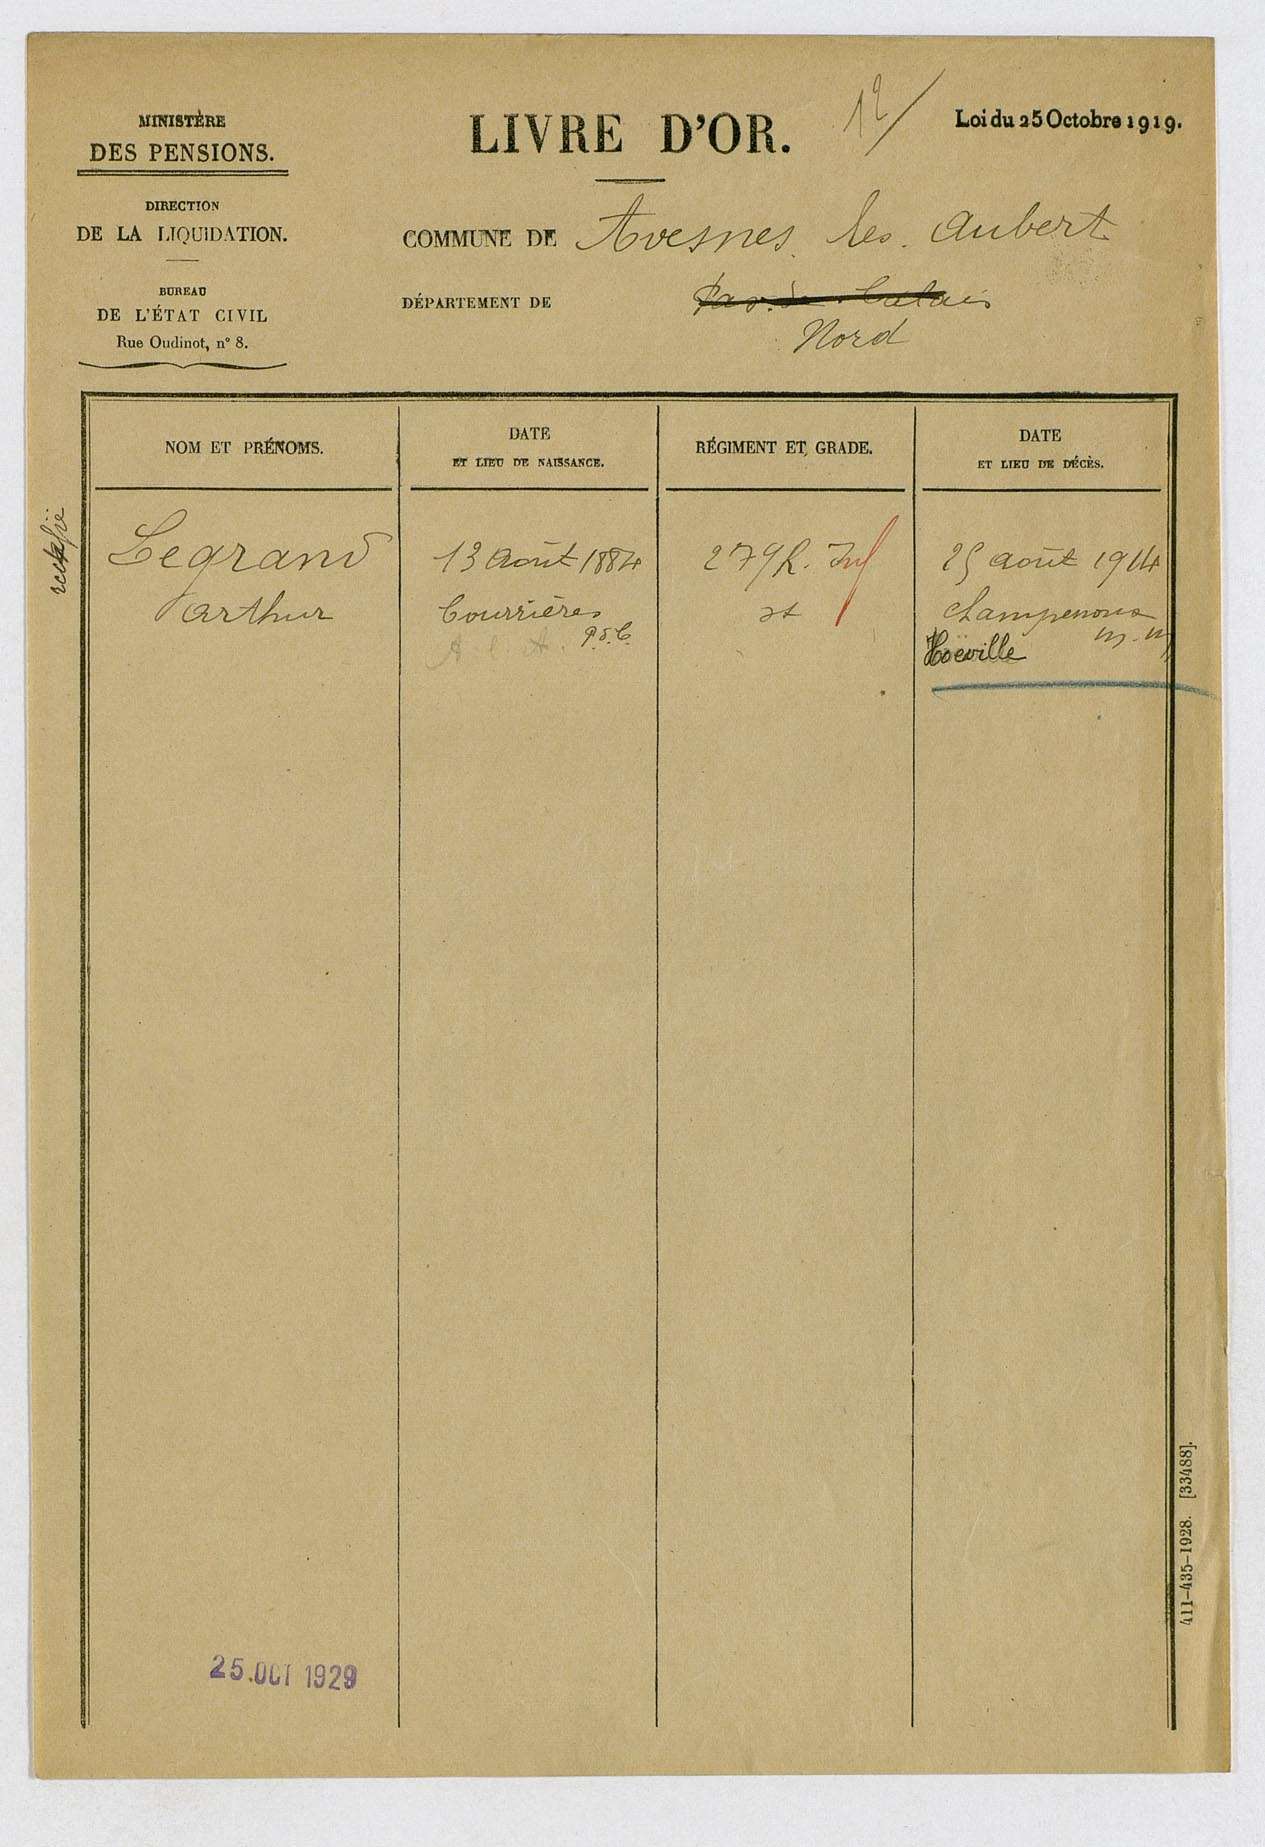 MINISTÈRE
DES PENSIONS.
DIRECTION
DE LA LIQUIDATION.
BUREAU
DE L'ÉTAT CIVIL
Rue Oudinot, n° 8.
LIVRE D'OR.
12/
Loi du 25 Octobre 1919.
COMMUNE DE Avesnes les Aubert
DÉPARTEMENT DE Pas de Calais
Nord
NOM ET PRÉNOMS.
DATE
ET LIEU DE NAISSANCE.
RÉGIMENT ET GRADE.
DATE
ET LIEU DE DÉCÈS.
rectifié
Legrand
Arthur
13 août 1884
Courrières
P.d.C.
279 R. Inf
25 août 1914
Champenoux
M. M
Hoëville
25.OCT 1929
411-435-1928. [33488].